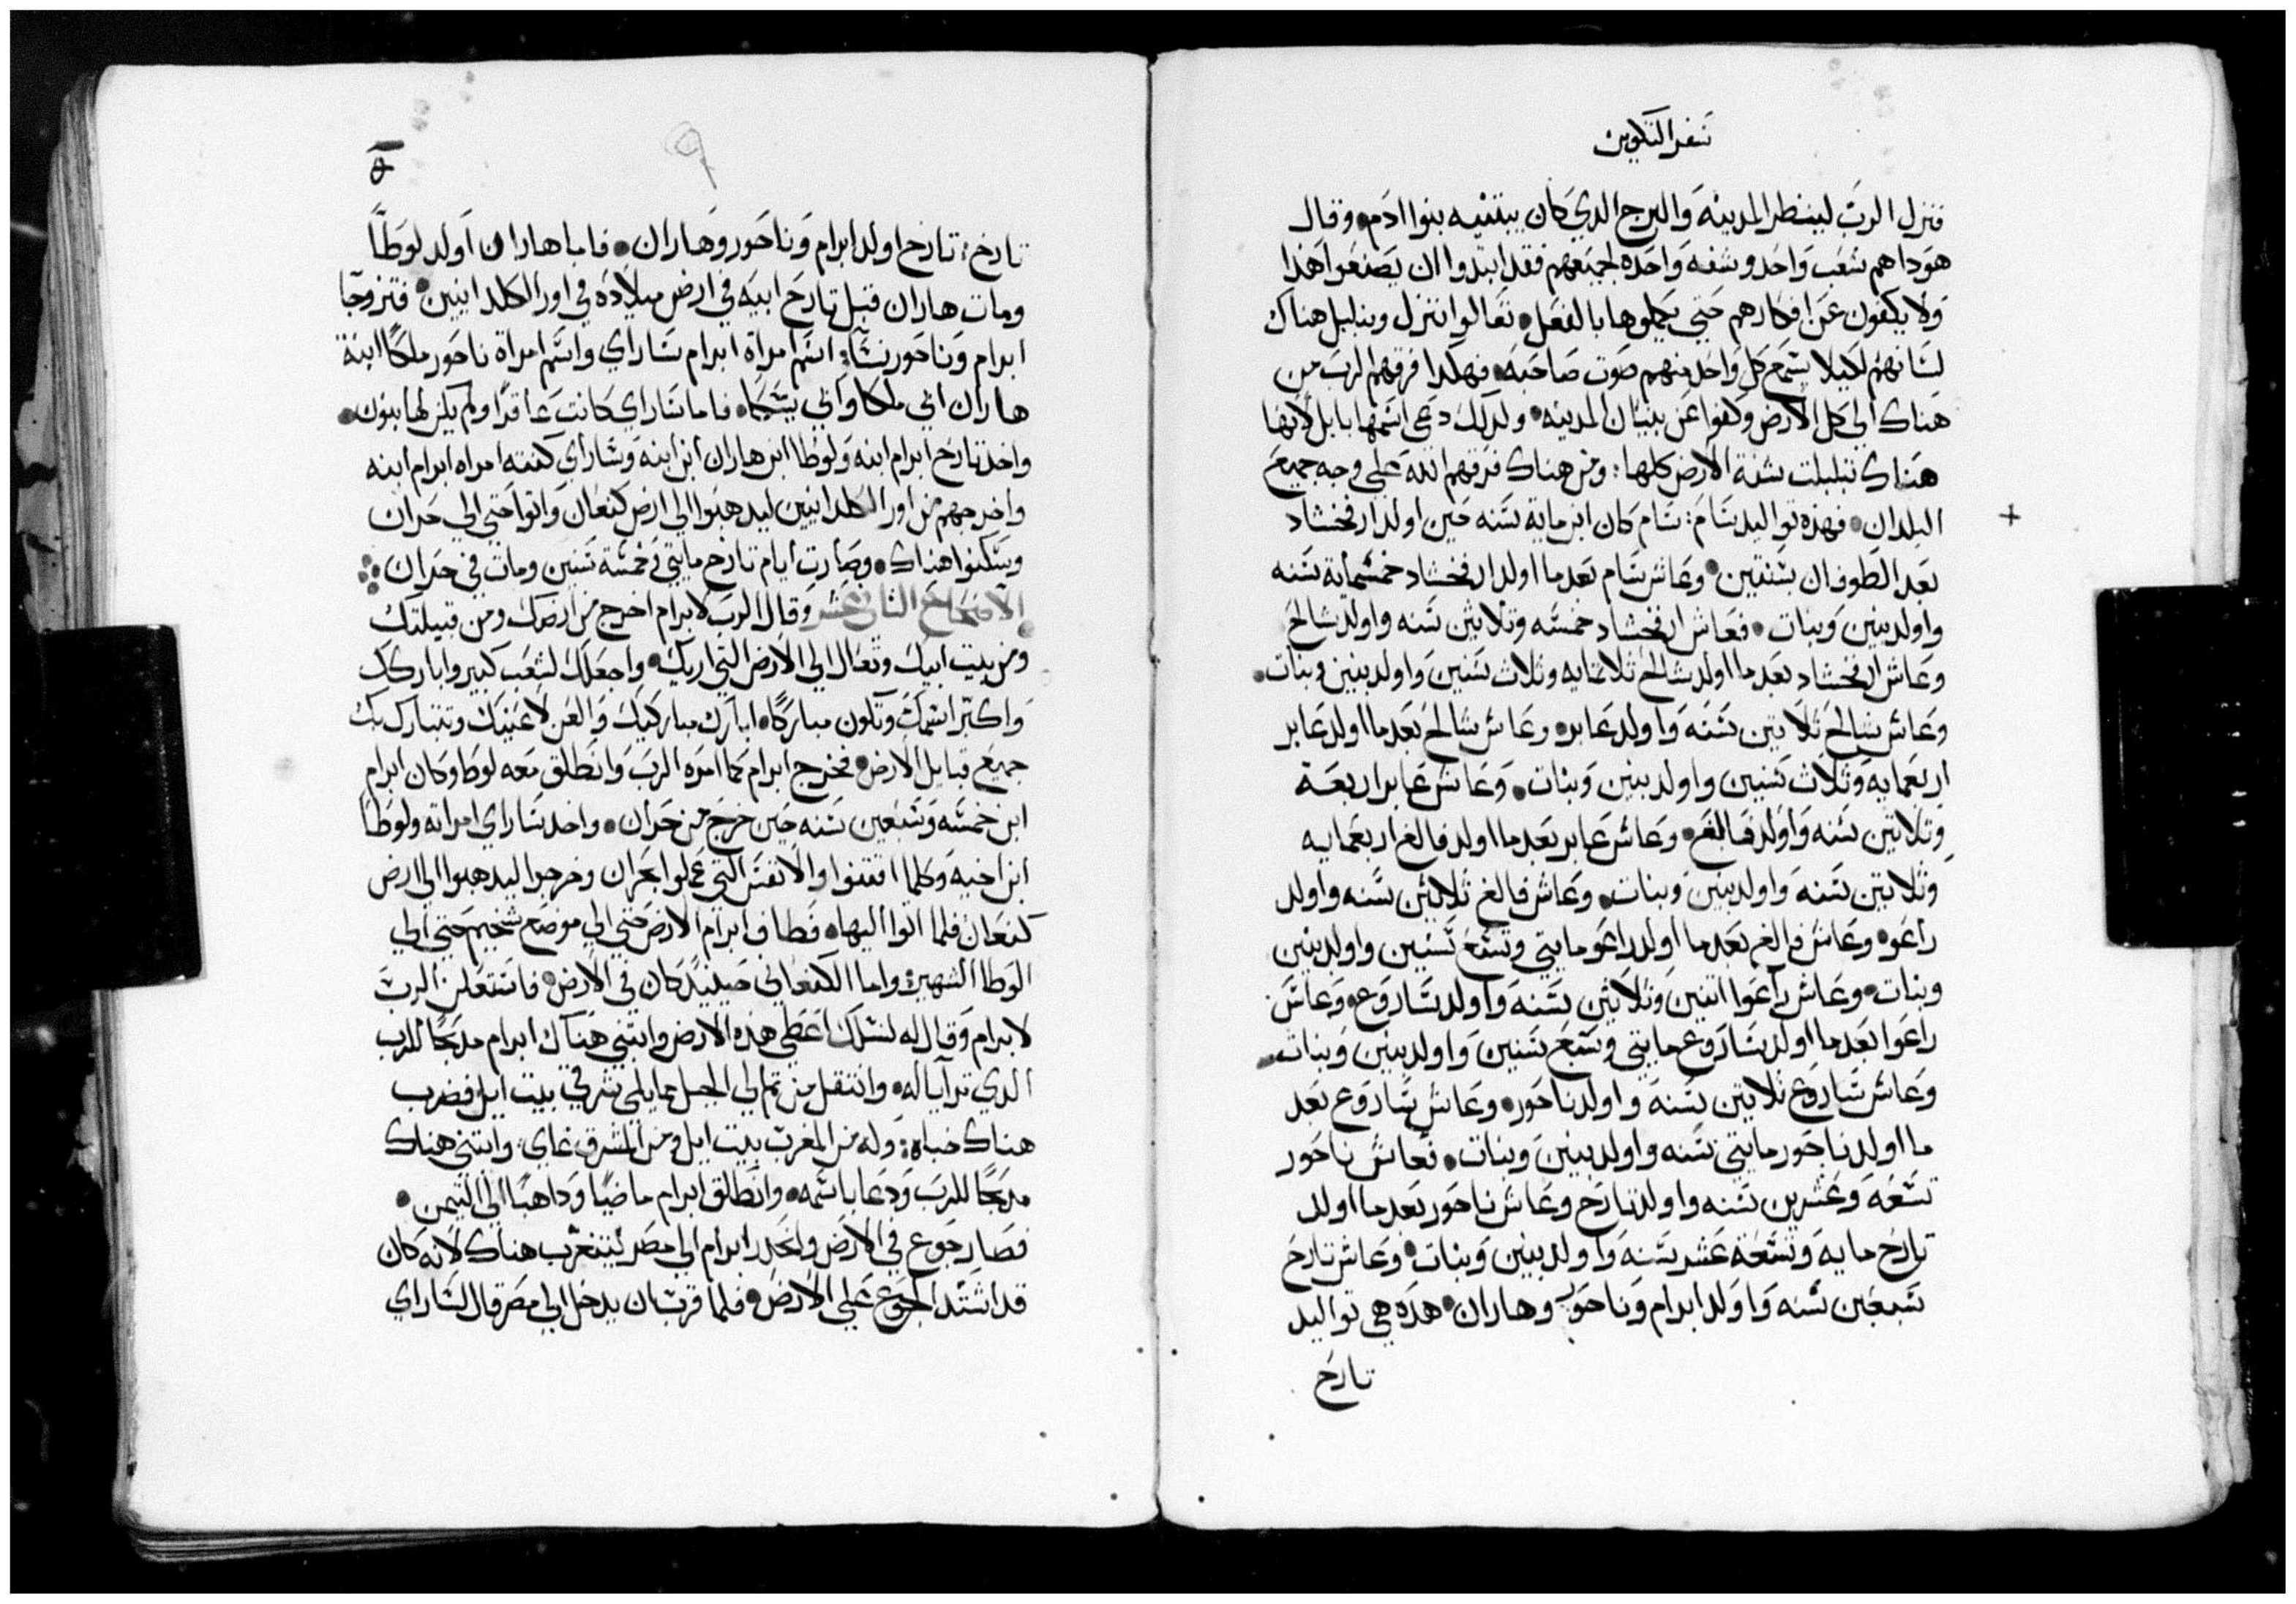 سفر التكوين
فنزل الرب لينظر المدينه والبرج الدي كان يبتنيه بنوا ادم وقال
هودا هم شعب واحد وشفه واحده لجميعهم فقد ابتدوا ان يصنعوا هذا
ولا يكفون عن افكارهم حتي يكملوها بالفعل تعالوا ننزل ونبلبل هناك
لسانهم لكيلا يسمع كل واحد منهم صوت صاحبه فهكدا فرقهم الرب من
هناك الي كل الارض وكفوا عن بنيان المدينه ولدلك دعي اسمها بابل لانها
هناك تبلبلت شفة الارض كلها ومن هناك فرقهم الله علي وجه جميع
البلدان فهذه تواليد سام سام كان ابن مايه سنه حين اولد ارفخشاد
بعد الطوفان بسنتين وعاش سام بعد ما اولد ارفخشاد خمسمايه سنه
واولد بنين وبنات فعاش ارفخشاد خمسه وثلاثين سنه واولد شالح
وعاش ارفخشاد بعد ما اولد شالح ثلاثمايه وثلاث سنين واولد بنين وبنات
وعاش شالح ثلاثين سنه واولد عابر وعاش شالح بعد ما اولد عابر
اربعمايه وثلاث سنين واولد بنين وبنات وعاش عابر اربعة
وثلاثين سنه واولد فالغ وعاش عابر بعد ما اولد فالغ اربعمايه
وثلاثين سنه واولد بنين وبنات وعاش فالغ ثلاثين سنه واولد
راعو وعاش فالغ بعد ما اولد راعو مايتي وتسع سنين واولد بنين
وبنات وعاش راعوا اتنين وثلاثين سنه واولد ساروع وعاش
راعوا بعد ما اولد ساروع مايتي وسبع سنين واولد بنين وبنات
وعاش ساروع ثلاثين سنه واولد ناحور وعاش ساروع بعد
ما اولد ناحور مايتي سنه واولد بنين وبنات فعاش ناحور
تسعه وعشرين سنه واولد تارح وعاش ناحور بعد ما اولد
تارح مايه وتسعة عشر سنه واولد بنين وبنات وعاش تارح
سبعين سنه واولد ابرام وناحور وهاران هده هي تواليد
تارح
تارح تارح اولد ابرام وناحور وهاران فاما هاران اولد لوطا
ومات هاران قبل تارح ابيه في ارض ميلاده في اور الكلدانيين فتزوجا
ابرام وناحور نساء اسم امراة ابرام ساراي واسم امراة ناحور ملكا ابنة
هاران ابي ملكا وابي يسكا فاما ساراي كانت عاقرا ولم يكن لها بنون
واخد تارح ابرام ابنه ولوطا ابن هاران ابن ابنه وساراي كنته امراه ابرام ابنه
واخرجهم من اور الكلدانيين ليدهبوا الي ارض كنعان واتوا حتي الي حران
وسكنوا هناك وصارت ايام تارح مايتي وخمسة سنين ومات في حران
الاصحاح الثاني عشر وقال الرب لابرام اخرج من ارضك ومن قبيلتك
ومن بيت ابيك وتعال الي الارض التي اريك واجعلك لشعب كبير واباركك
واكتر اسمك وتكون مباركا ابارك مباركيك والعن لاعنيك وتتبارك بك
جميع قبايل الارض فخرج ابرام كما امره الرب وانطلق معه لوطا وكان ابرام
ابن خمسه وسبعين سنه حين خرج من حران واخد ساراي امراته ولوطا
ابن اخيه وكلما اقتنوا والانفس التي عملوا بحران وخرجوا ليدهبوا الي ارض
كنعان فلما اتوا اليها فطاف ابرام الارض حتي الي موضع شخيم حتي الي
الوطا الشهيره واما الكنعاني حينيد كان في الارض فاستعلن الرب
لابرام وقال له لنسلك اعطي هذه الارض وابتني هناك ابرام مدبحا للرب
الدي ترايا له وانتقل من تم الي الجبل مما يلي شرقي بيت ايل فضرب
هناك خباه وله من المغرب بيت ايل ومن المشرق عاي وابتني هناك
مدبحا للرب ودعا باسمه وانطلق ابرام ماضيا وداهبا الي التيمن
فصار جوع في الارض وانحدر ابرام الي مصر ليتغرب هناك لانه كان
قد اشتد الجوع علي الارض فلما قرب ان يدخل الي مصر قال لساراي